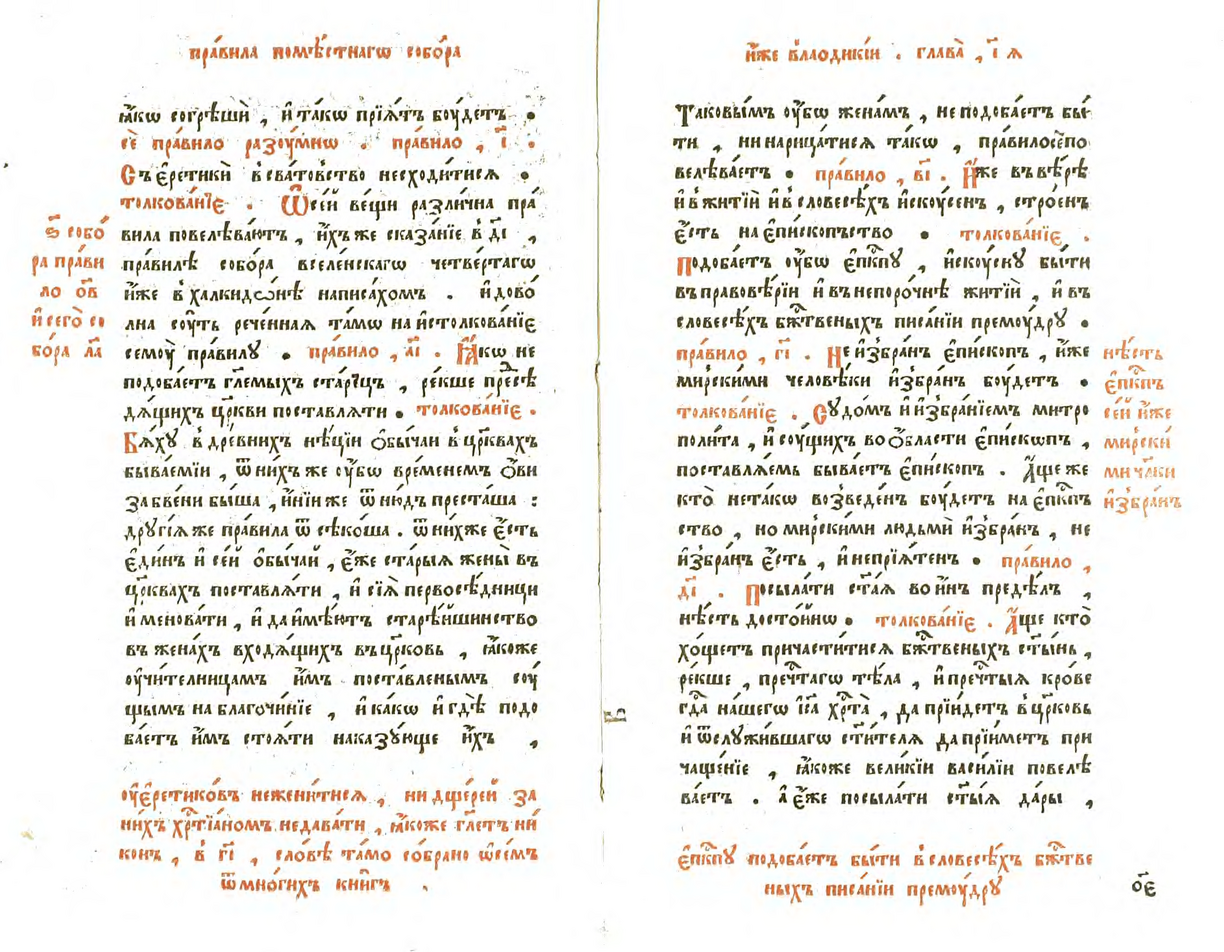 пра́вила помѣ́стнагѡ собо́ра
ꙗ҆́кѡ согрѣшѝ , и҆ та́кѡ прїѧ́тъ бꙋ́детъ •
се̏ пра́вило разꙋ́мнѡ . пра́вило , і҃ .
Съ є҆ретикѝ в̾ сва́товство несходи́тисѧ •
толкова́нїе . Ѿ сей ве́щи разли́чна пра́
вила повелѣва́ютъ , и҆́хъ же сказа́нїе в̾ д҃і ,
пра́вилѣ собо́ра вселе́нскагѡ четве́ртагѡ
и҆́же в̾ халкидѡ́нѣ написа́хомъ . и҆ дово́
лна сꙋ́ть рече́ннаѧ та́мѡ на и҆столкова́нїе
семꙋ̀ пра́вилꙋ • пра́вило , а҃і . Ꙗ҆́кѡ не
подоба́етъ гл҃емыхъ ста́рицъ , ре́кше пресѣ
дѧ́щихъ цр҃кви поставлѧ́ти • толкова́нїе .
Бѧ́хꙋ в̾ дре́внихъ нѣ́цїи ѻ҆бы́чаи в̾ цр҃квахъ
быва́емїи , ѿ ни́хъ же ᲂу҆́бѡ вре́менемъ ѻ҆́ви
забве́ни бы́ша , и҆ні́и же ѿню́дъ преста́ша :
дрꙋгі́ѧ же пра́вила ѿсѣко́ша . ѿ ни́хже є҆́сть
є҆ди́нъ и҆ се́й ѻ҆бы́чай , є҆́же ста́рыѧ жены̀ въ
цр҃квахъ поставлѧ́ти , и҆ сїѧ̀ первосѣ́дницы
и҆менова́ти , и҆ да и҆мѣ́ютъ старѣ́йшинство
въ жена́хъ входѧ́щихъ въ цр҃ковь , ꙗ҆́коже
ᲂу҆чи́телницамъ и҆̀мъ поста́вленымъ сꙋ́
щымъ на благочи́нїе , и҆ ка́кѡ и҆ гдѣ̀ подо
ба́етъ и҆̀мъ стоѧ́ти наказꙋ́юще и҆́хъ ,
ᲂу҆ є҆ретико́въ нежени́тисѧ , ни дще́рей за
ни́хъ хрⷭ҇тїа́номъ недава́ти , ꙗ҆́коже гл҃етъ ни́
конъ , в̾ г҃і , сло́вѣ та́мо со́брано ѡ҆ се́мъ
ѿ мно́гихъ кни́гъ .
ѕ҃ собо́
ра пра́ви
ло ѻ҃в
и҆ сего̀ со
бо́ра л҃а
и҆́же в̾ лаодикі́и . глава̀ , і҃ѧ
Таковы́мъ ᲂу҆́бѡ жена́мъ , не подоба́етъ бы́
ти , ни нарица́тисѧ та́кѡ , пра́вило се̏ по
велѣва́етъ • пра́вило , в҃і . И҆́же въ вѣ́рѣ
и҆ в̾ житїѝ и҆ в̾ словесѣ́хъ и҆скꙋ́сенъ , стро́енъ
є҆́сть на є҆пи́скопьство • толкова́нїе .
Подоба́етъ ᲂу҆́бѡ є҆пⷭ҇кпꙋ , и҆скꙋ́снꙋ бы́ти
въ правовѣ́рїи и҆ въ непоро́чнѣ житїѝ , и҆ въ
словесѣ́хъ бж҃твеныхъ писа́нїи премꙋ́дрꙋ •
пра́вило , г҃і . Не и҆збра́нъ є҆пи́скопъ , и҆́же
ми́рскими человѣ́ки и҆збра́нъ бꙋ́детъ •
толкова́нїе . Сꙋдо́мъ и҆ и҆збра́нїемъ митро
поли́та , и҆ сꙋ́щихъ во ѻ҆́бласти є҆пи́скѡпъ ,
поставлѧ́емь быва́етъ є҆пи́скопъ . А҆́ще же
кто̀ нета́кѡ возведе́нъ бꙋ́детъ на є҆пⷭ҇кпъ
ство , но ми́рскими людьмѝ и҆збра́нъ , не
и҆збра́нъ є҆́сть , и҆ непрїѧ́тенъ • пра́вило ,
д҃і . Посыла́ти ст҃а́ѧ во и҆́нъ предѣ́лъ ,
нѣ́сть досто́йнѡ • толкова́нїе . А҆́ще кто̀
хо́щетъ причасти́тисѧ бж҃твеныхъ ст҃ы́нь ,
ре́кше , пречⷭ҇тагѡ тѣ́ла , и҆ пречⷭ҇тыѧ кро́ве
гд҇а на́шегѡ і҆с҃а хрⷭ҇та̀ , да прїи́детъ в̾ цр҃ковь
и҆ ѿслꙋжи́вшагѡ ст҃и́телѧ да прїи́метъ при
чаще́нїе , ꙗ҆́коже вели́кїи васи́лїи повелѣ
ва́етъ . а҆ є҆́же посыла́ти ст҃ы́ѧ да́ры ,
є҆пⷭ҇кпꙋ подоба́етъ бы́ти в̾ словесѣ́хъ бж҃тве
ныхъ писа́нїи премꙋ́дрꙋ
нѣ́сть
є҆пⷭ҇кпъ
се́й и҆́же
ми́рски
ми чл҃ки
и҆збра́нъ
ѻ҃е